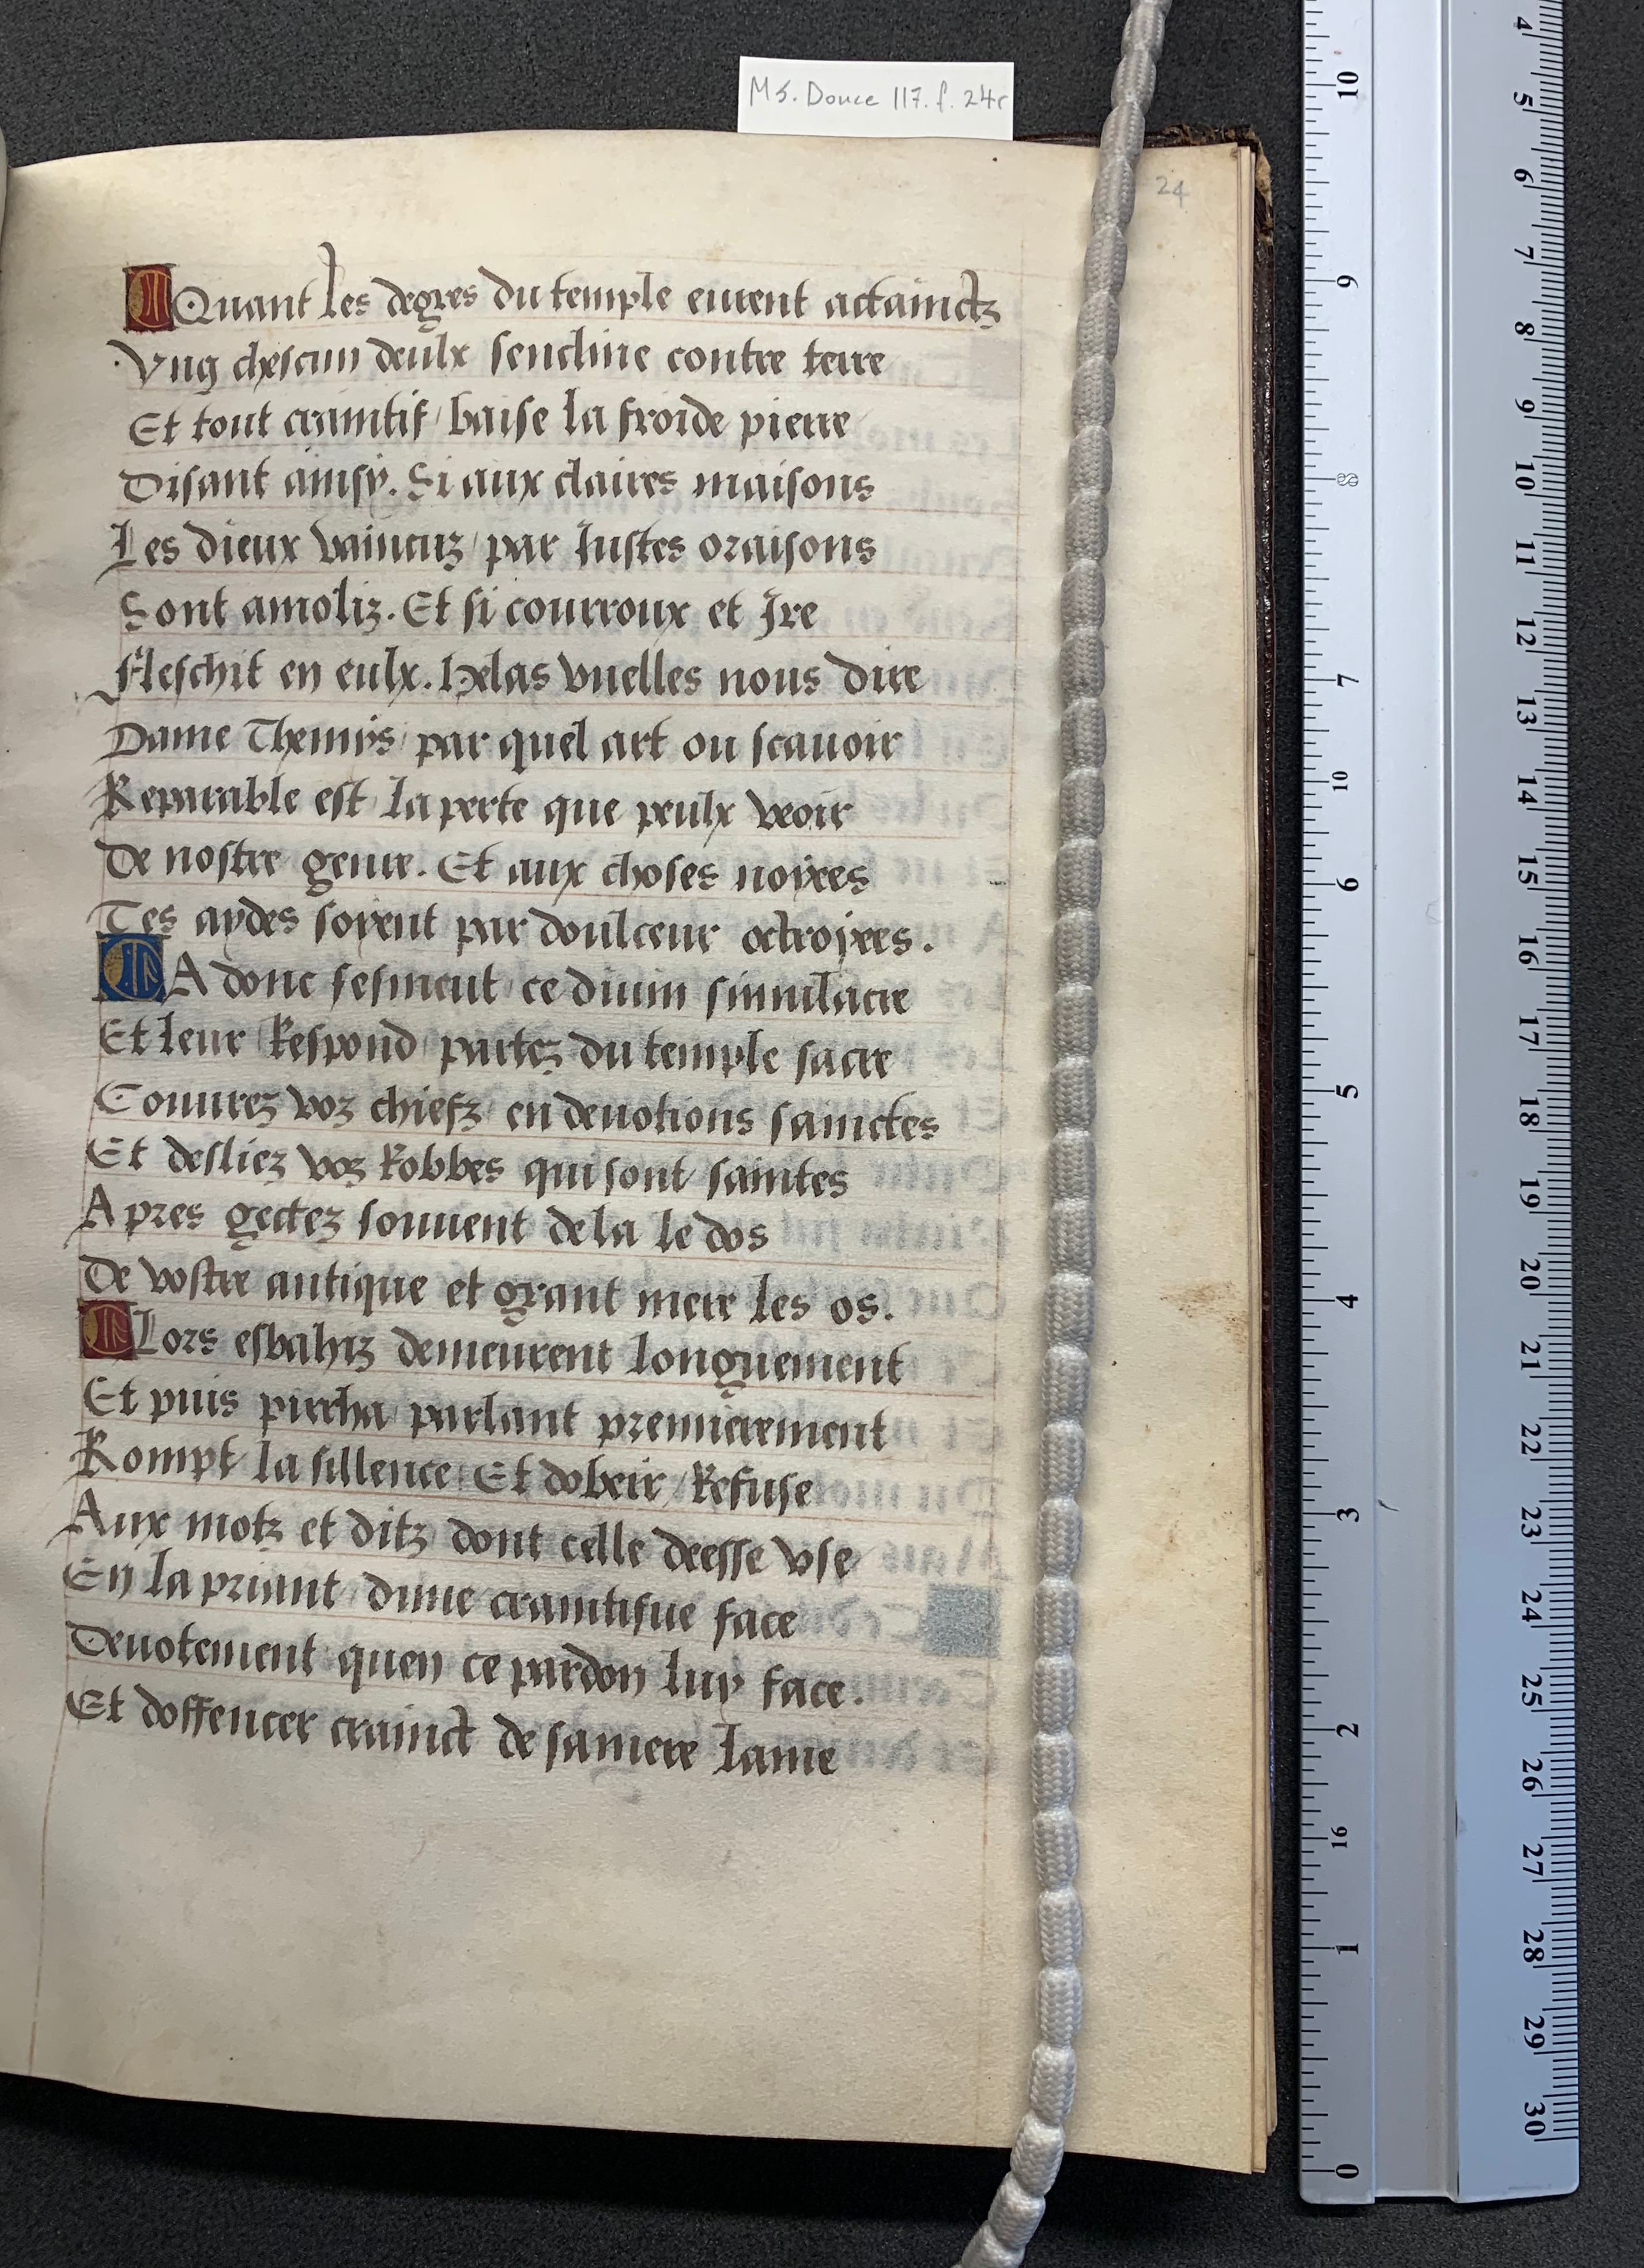 MS. Douce 117. f. 24r
24
Quant les degres du temple eurent actainctz
Vng chescun deulx sencline contre terre
Et tout craintif / baise la froide pierre
Disant ainsy. Si aux claires maisons
Les dieux vaincuz / par Iustes oraisons
Sont amoliz. Et si courroux et Ire
Fleschit en eulx. Helas vuelles nous dire
Dame Themys / par quel art ou scauoir
Reparable est / la perte que peulx veoir
De nostre genre. Et aux choses noyees
Tes aydes soyent par doulceur octroyees.
A donc sesmeut / ce diuin simulacre
Et leur Respond / partez du temple sacre
Couurez voz chiefz / en deuotions sainctes
Et desliez voz Robbes qui sont saintes
Apres gectez souuent dela le dos
De vostre antique et grant mere les os.
Lors esbahiz demeurent longuement
Et puis pirrha / parlant premierement
Rompt la sillence Et dobeir / Refuse
Aux motz et ditz dont celle deesse vse
En la priant dune craintifue face
Deuotement quen ce pardon luy face.
Et doffencer crainct de sa mere lame
10
9
8
7
10
6
5
4
3
2
16
1
0
4
5
6
7
8
9
10
11
12
13
14
15
16
17
18
19
20
21
22
23
24
25
26
27
28
29
30